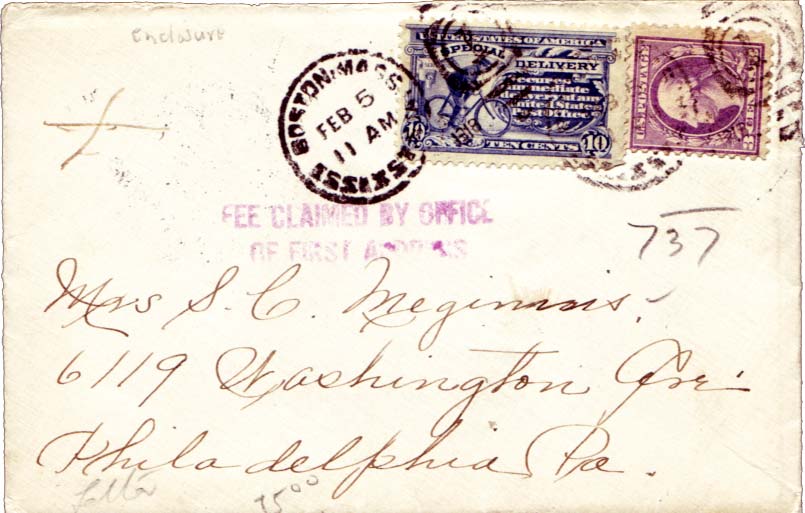 enclosure
UNITED STATES OF AMERICA
SPECIAL DELIVERY
Secures
immediate
delivery at any
United States
Post Office.
10 TEN CENTS 10
U.S. POSTAGE
3 CENTS 3
BOSTON, MASS.
FEB 5
11 AM
1918
FEE CLAIMED BY OFFICE
OF FIRST ADDRESS
737
Mrs S. C. Meginnis.
6119 Washington Ave.
Philadelphia Pa.
75 00